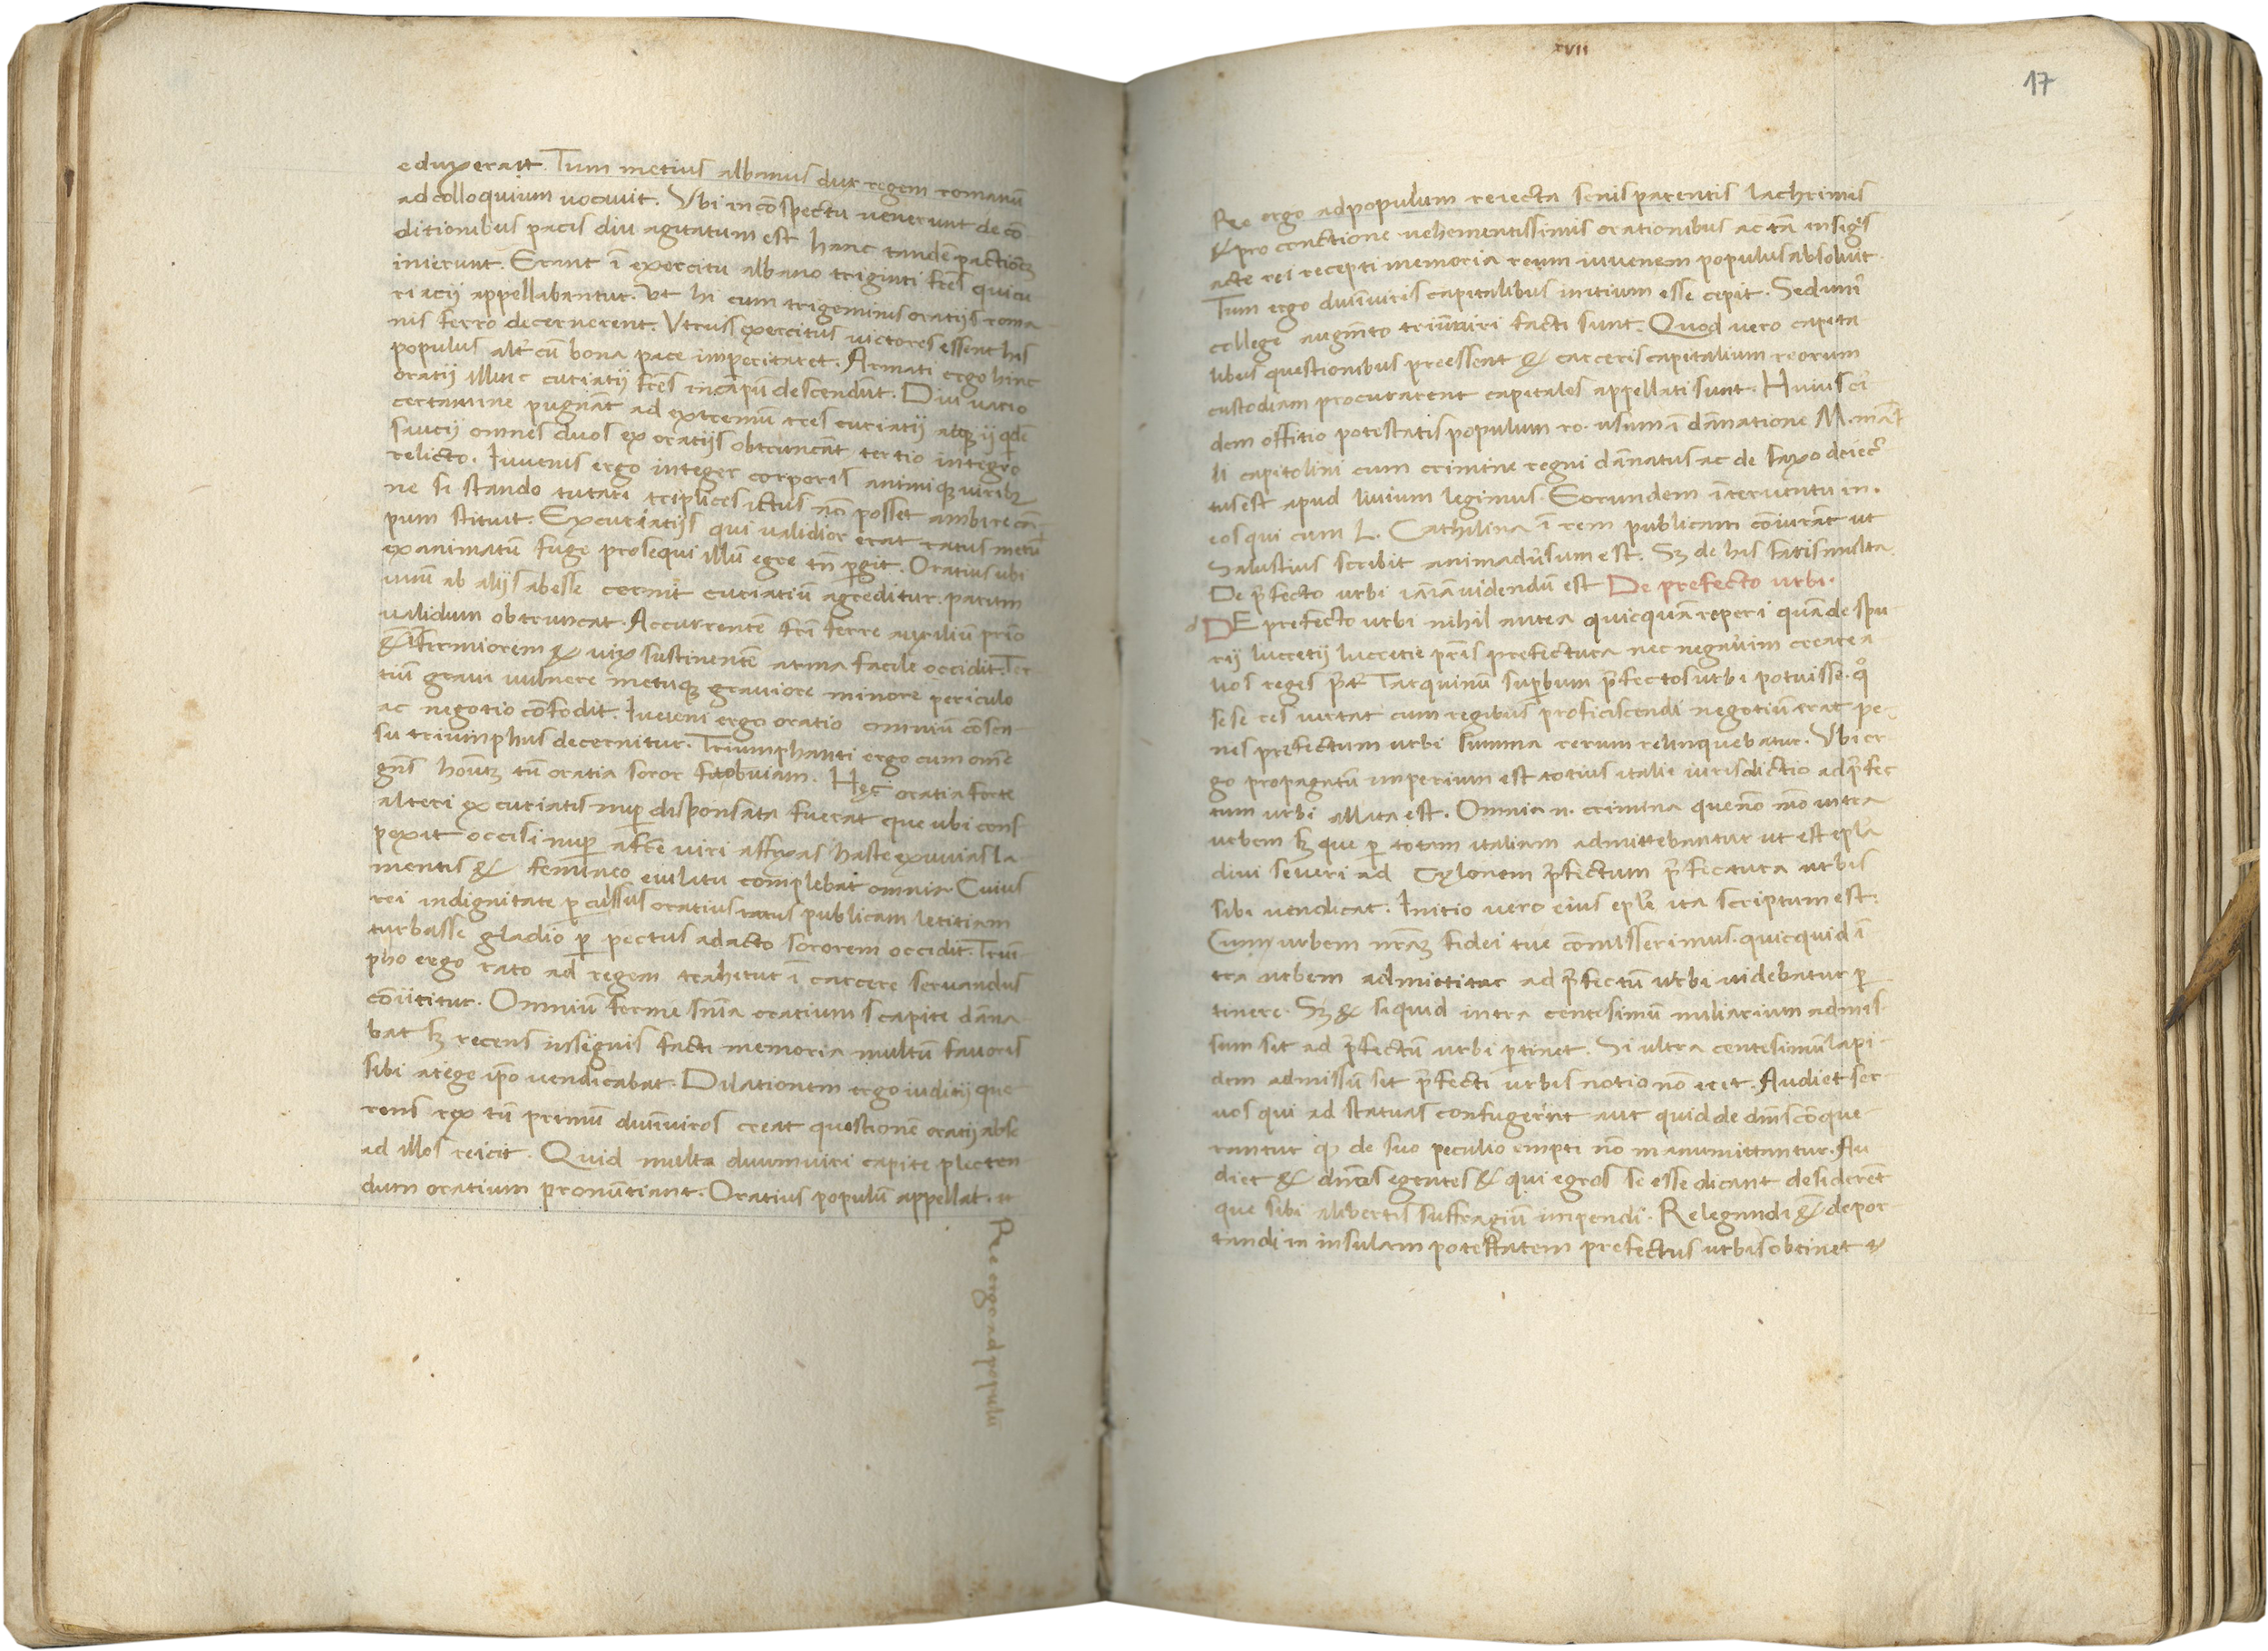 eduxerāt. Tum metius albanus dux regem romanū
ad colloquium vocavit. Ubi in cōspectu venerunt de cō
ditionibus pacis diu agitatum est hanc tandē pactionē
inierunt. Erant ī exercitu albano trigiuti frēs qui cu
riacij appellabantur. Ut hi cum trigeminis oratijs roma
nis ferro decernerent. Utriusꝗ exercitus victores essent his
populus alt̄ cū bona pace imperitaret. Armati ergo hinc
oratij illinc curiatij frēs in cāpū descendūt. Diu vario
certamine pugnāt ad extremū tres curiatij atqꝫ ij qdē
saucij omnes duos ex oratijs obtruncāt tertio integro
relicto. Iuvenis ergo integer corporis animiqꝫ viribꝫ
ne si stando tutari triplices ictus nō posset ambire cā
pum stituit. Ex curiatijs qui validior erat ratus metu
exanimatū fuge prosequi illū egre tn̄ ꝑgit. Oratius ubi
unū ab alijs abesse cernit curiatiū agreditur. parum
validum obtruncat. Accurrentē fr̄i ferre auxiliū prīo
& īfirmiorem & vix sustinentē arma facile occidit. Ter
tiū gravi vulnere metuqꝫ graviore minore periculo
ac negotio cōfodit. Iuveni ergo oratio omniū cōsen
su triumphus decernitur. Triumphanti ergo cum omē
gn̄s hoīuꝫ tū oratia soror fit obviam. Hęc oratia forte
alteri ex curiatis nuꝑ disponsata fuerat que ubi cons
pexit occisi nuꝑ a frē viri affixas haste exuvias la
mentis & femineo eiulatu complebat omnia. Cuius
rei indignitate ꝑcussus oratius ratus publicam letitiam
turbasse gladio ꝑ pectus adacto sororem occidit. Trium
pho ergo rato ad regem trahitur ī carcere servandus
cōijcitur. Omniū ferme snīa oratium scapite dāna
bat sꝫ recens insignis facti memoria multū favoris
sibi a rege ip̄o vendicabat. Dilationem ergo iuditij que
rens rex tū primū duūviros creat questionē oratij ab se
ad illos reicit. Quid multa duumviri capite plecten
dum oratium pronūtiant. Oratius populū appellat. ut
Re ergo ad populū
xvii
17
Re ergo ad populum reiecta senis parentis lachrimis
& pro conctione vehementissimis orationibus ac tā insigīs
acte rei recepti memoria reum iuvenem populus absoluit.
Tum ergo duūviris capitalibus initium esse cepit. Sed unī
college augm̄to triūviri facti sunt. Quod vero capita
libus questionibus preessent & carceris capitalium reorum
custodiam procurarent capitales appellati sunt. Huiuscī
dem offitio potestatis populum ro. usum ī dānatione M. māl
li capitolini cum crimine regni dānatus ac de saxo deiec
tus est apud livium legimus. Eorundem īterventu in
eos qui cum L. Cathilina ī rem publicam cōiurāt ut
Salustius scribit animadv̄sum est. Sꝫ de his satis multa.
De p̄fecto urbi iā iā videndū est De prefecto urbi.
d DE prefecto urbi nihil antea quicquā reperi quā de spu
rij lucretij lucretie prīs prefectura nec negav̄im creare a
lios reges p̄t̄ Tarquinū suꝑbum p̄fectos urbi potuisse. qͦ
sese res vertat cum regibus proficiscendi negotiū erat pe
nes prefectum urbi summa rerum relinquebatur. Ubi er
go propagatū imperium est totius italie iurisdictio ad p̄fec
tum urbi allata est. Omnia n. crimina que nō mō intra
urbem sꝫ que ꝑ totam italiam admittebantur ut est epl̄a
divi severi ad Cylonem p̄fectum p̄fectura urbis
sibi vendicat. Initio vero eius epl̄e ita scriptum est.
Cum urbem nr̄aꝫ fidei tue cōmisserimus. quicquid ī
tra urbem admittitur ad p̄fectū urbi videbatur ꝑ
tinere. Sꝫ & siquid intra centesimū miliarium admis
sum sit ad p̄fectū urbi ꝑtinet. Si ultra centesimū lapi
dem admissū sit p̄fecti urbis notio nō erit. Audiet ser
vos qui ad statuas confugerint aut quid de dnīs cōque
rantur ꝙ de suo peculio empti nō manumittantur. Au
diet & dnōs egentes & qui egros se esse dicant desiderēt
que sibi alibertis suffragiū impendi. Relegandi & depor
tandi in insulam potestatem prefectus urbis obtinet &